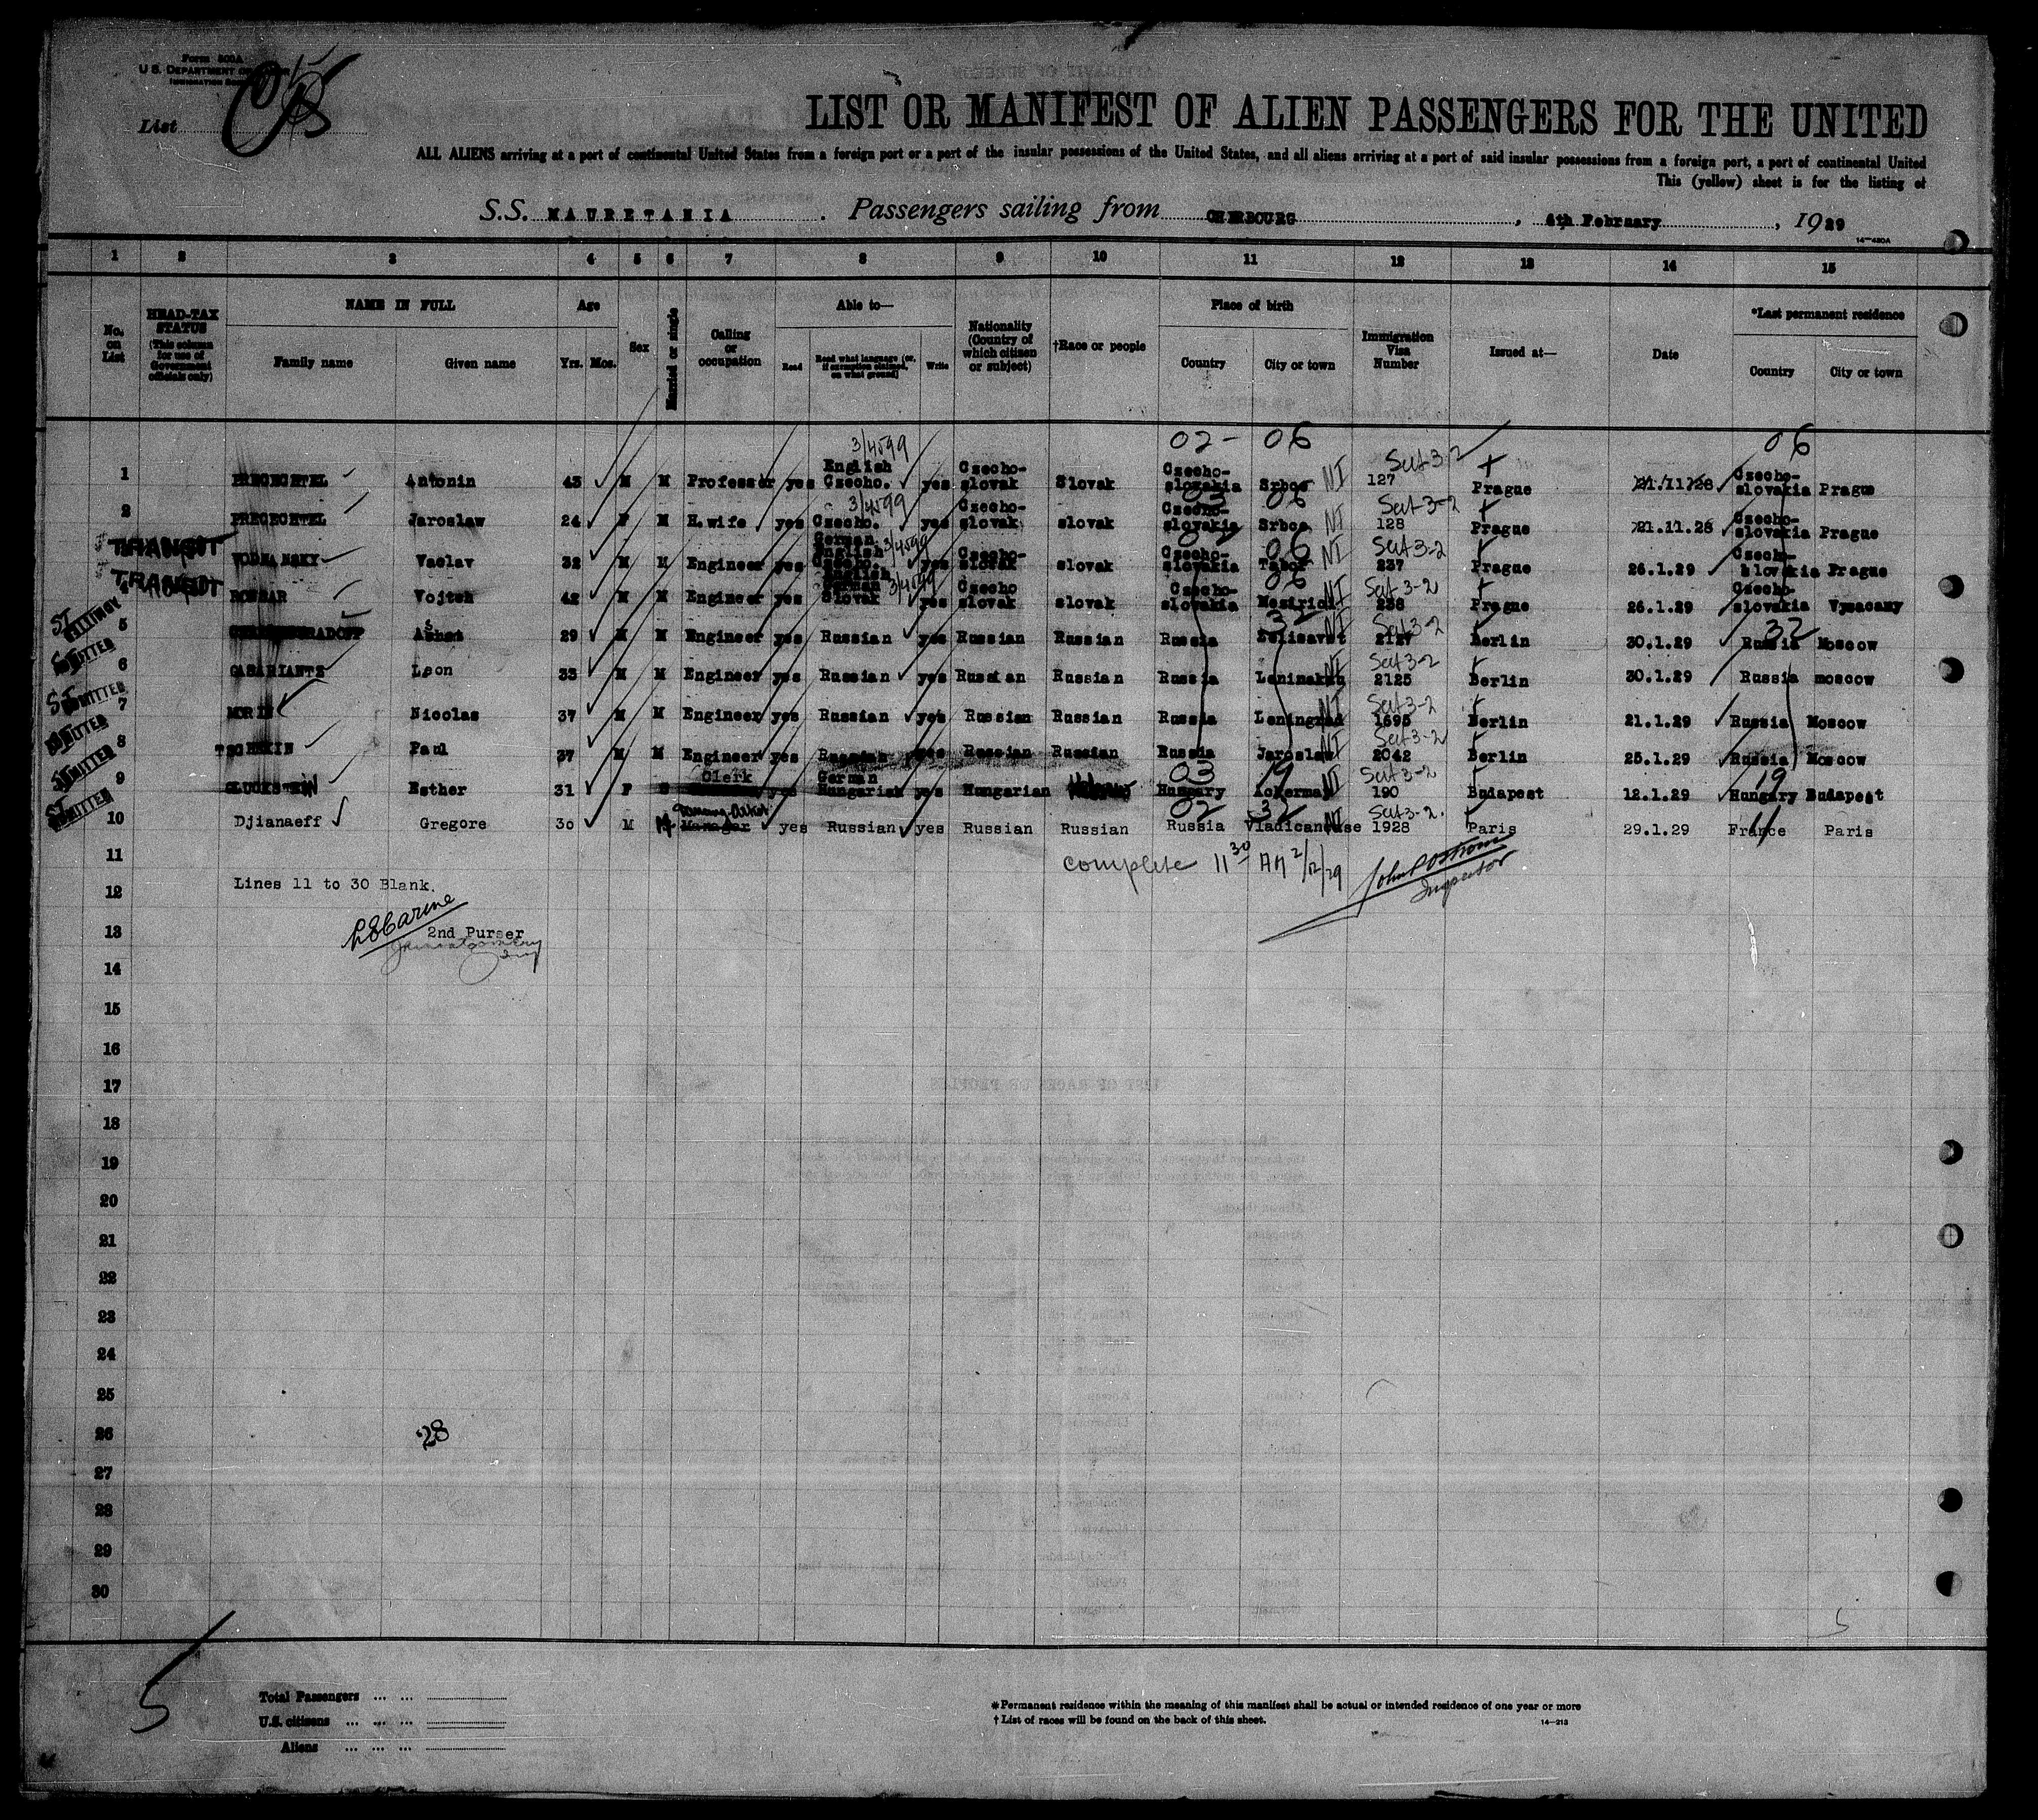 Form 500A
U.S. DEPARTMENT OF
IMMIGRATION
List
LIST OR MANIFEST OF ALIEN PASSENGERS FOR THE UNITED
ALL ALIENS arriving at a port of continental United States from a foreign port or a port of the insular possessions of the United States, and all aliens arriving at a port of said insular possessions from a foreign port, a port of continental United
This (yellow) sheet is for the listing of
S.S. MAURETANIA. Passengers sailing from CHERBOURG, 4th February, 1929
14—430A
1 2 3 4 5 6 7 8 9 10 11 12 13 14 15
No. on List
HEAD-TAX STATUS (This column for use of Government officials only)
NAME IN FULL
Family name Given name
Age
Yrs. Mos.
Sex
Married or single
Calling or occupation
Able to—
Read Read what language (or, if exemption claimed, on what ground) Write
Nationality (Country of which citizen or subject)
†Race or people
Place of birth
Country City or town
Immigration Visa Number
Issued at—
Date
*Last permanent residence
Country City or town
02- 06 06
1 PRECECHTEL Antonin 43 M M Professor yes English Czecho. 3/4599 yes Czecho-slovak Slovak Czecho-slovakia Srbce NI 127 Sect 3-2 Prague 21.11.28 Czecho-slovakia Prague
2 PRECECHTEL Jaroslaw 24 F M H.wife yes Czecho. 3/4599 yes Czecho-slovak slovak Czecho-slovakia 03 Srbce 06 NI 128 Sect 3-2 Prague 21.11.28 Czecho-slovakia Prague
TRANSIT VODNANSKY Vaclav 32 M M Engineer yes German English Czecho. 3/4599 yes Czecho-slovak slovak Czecho-slovakia Tabor 06 NI 237 Sect 3-2 Prague 26.1.29 Czecho-slovakia Prague
TRANSIT Vojteh 42 M M Engineer yes English German Slovak 3/4599 yes Czecho slovak slovak Czecho-slovakia 06 NI 238 Sect 3-2 Prague 26.1.29 Czecho-slovakia Vysocany
5 29 M M Engineer yes Russian yes Russian Russian Russia 32 NI 2127 Sect 3-2 Berlin 30.1.29 Russia 32 Moscow
6 GASARIANTS Leon 33 M M Engineer yes Russian yes Russian Russian Russia Leninakan NI 2125 Sect 3-2 Berlin 30.1.29 Russia moscow
7 MORIN Nicolas 37 M M Engineer yes Russian yes Russian Russian Russia Leningrad NI 1695 Sect 3-2 Berlin 21.1.29 Russia Moscow
8 Paul 37 M M Engineer yes Russian yes Russian Russian Russia Jaroslaw NI 2042 Sect 3-2 Berlin 25.1.29 Russia Moscow
9 GLUCKSTEIN Esther 31 F S Clerk yes German Hungarian yes Hungarian Hungary 03 Ackerman 19 NI 190 Sect 3-2 Budapest 12.1.29 Hungary 19 Budapest
10 Djianaeff Gregore 30 M M Manager yes Russian yes Russian Russian Russia 02 Vladicaucase 32 NI 1928 Sect 3-2. Paris 29.1.29 France 11 Paris
11
complete 11 30 AM 2/12/29
Inspector
12 Lines 11 to 30 Blank.
13 2nd Purser
14
15
16
17
18
19
20
21
22
23
24
25
26 28
27
28
29
30
5
Total Passengers ... ...
U.S. citizens ... ... ...
Aliens ... ... ...
*Permanent residence within the meaning of this manifest shall be actual or intended residence of one year or more
†List of races will be found on the back of this sheet.
14—213